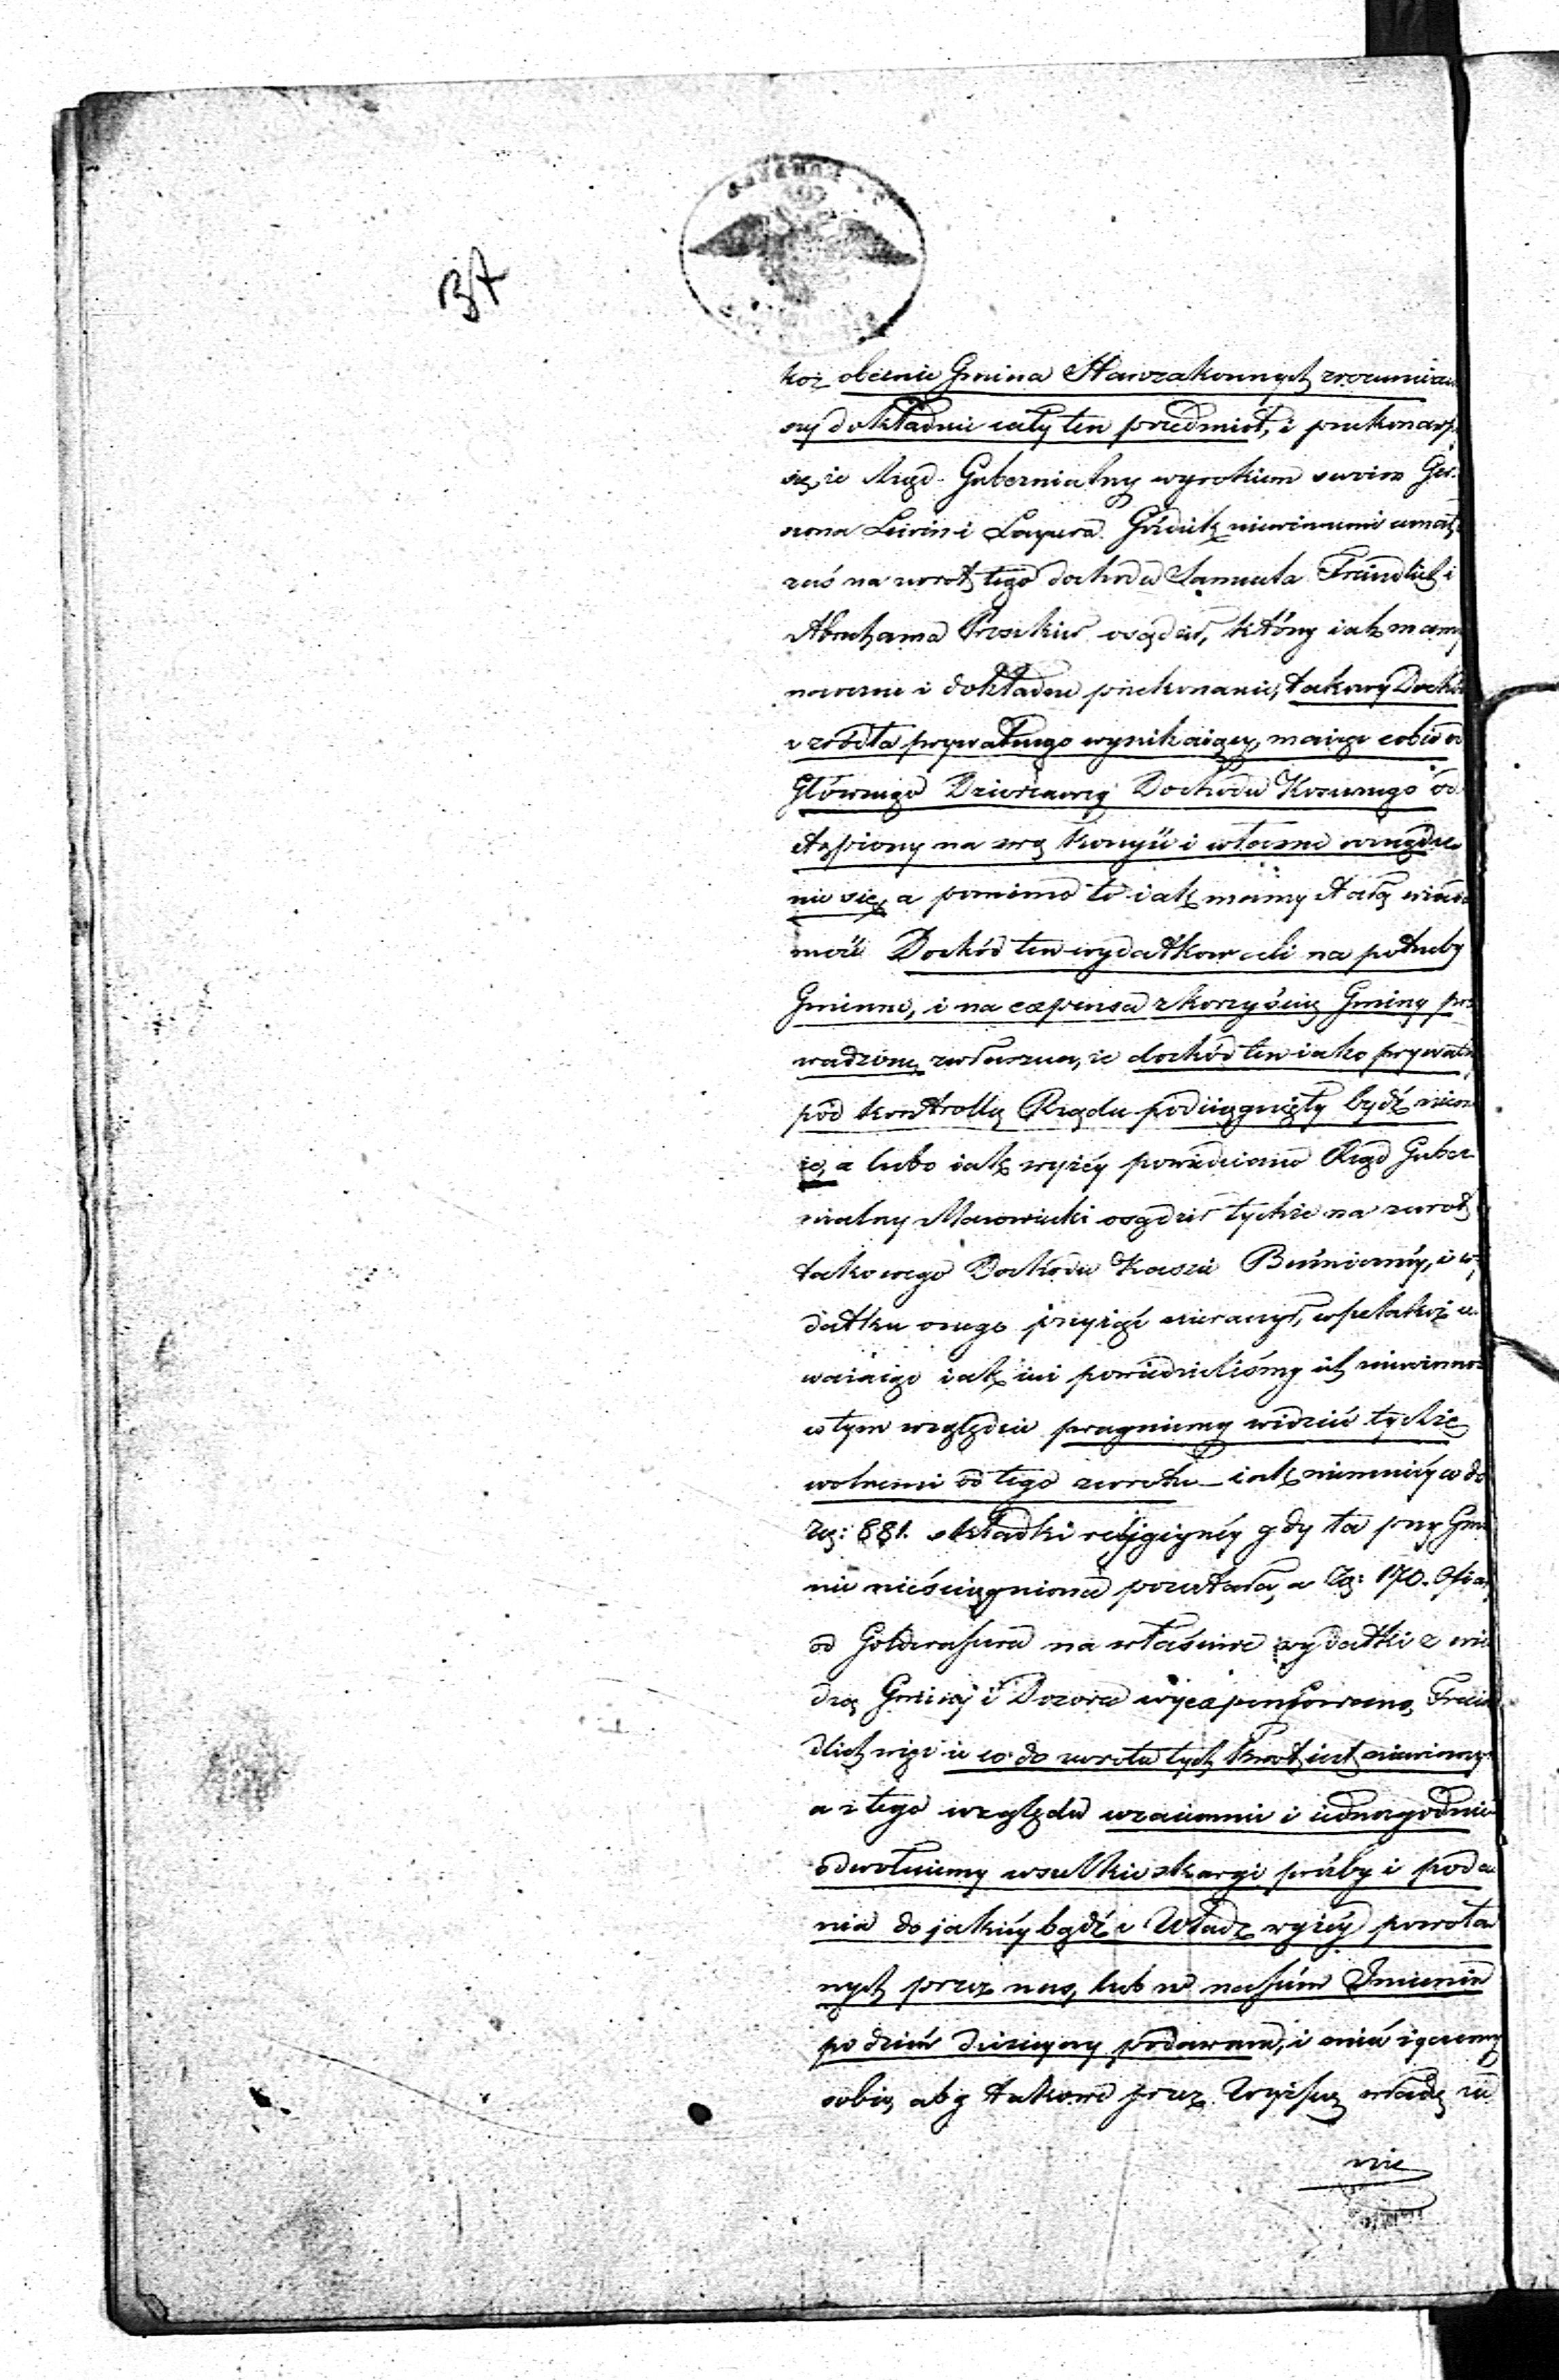 koż obecnie Gmina Starozakonnych zrozumiaw
szy dokładnie cały ten przedmiot, i przekonawsz
się, że Rząd Gubernialny wyrokiem swoim Ger
szona Lewin i Layzera niewinnemi uznał,
zaś na zwrot tego dochodu Samuela Freindlich i
Abrahama osądził, który iak mamy
naoczne i dokładne przekonanie, takowy Dochó
z źródła prywatnego wynikaiący, maiąc sobie od
Głównego Dzierżawcy Dochodu Koszernego od
stąpiony na swą korzyść i własne
nie się, a pomimo to iak mamy stałą wiado
mość Dochód ten wydatkowali na potrzeby
Gminne, i na expensa z korzyścią Gminy pro
wadzone, zwłaszcza, że dochód ten iako prywatny
pod kontrollę Rządu podciągnięty bydź niemo
że, a lubo iak wyżéy powiedziano Rząd Guber
nialny Mazowiecki osądził tychże na zwrot
takowego Dochodu Kassie Bużniczny, i wy
datku onego przyiąć nieraczył, wszelakoż u
ważaiąc iak iuż powiedzieliśmy ich niewinność
w tym względzie pragniemy widzieć tychże
wolnemi od tego zwrotu – iak niemniéy co do
Rs: 881. składki religiynéy gdy ta przy Gmi
nie nieściągnioną pozostała, a Rs: 170. Ofiar
od Goldwassera na właściwe wydatki z wie
dzą Gminy i Dozoru wyexpensowano, Frein
dlich więc iż co do zwrotu tych kwot iest niewinny
a z tego względu wzaiemnie i iednozgodnie
odwołuiemy wszelkie skargi prośby i poda
nia do jakiéy bądź z Władz wyżéy powoła
nych przez nas, lub w naszém Imieniu
po dzień dzisieyszy podawane, i mieć życzemy
sobie, aby takowe przez Wyższą władzę za
nie